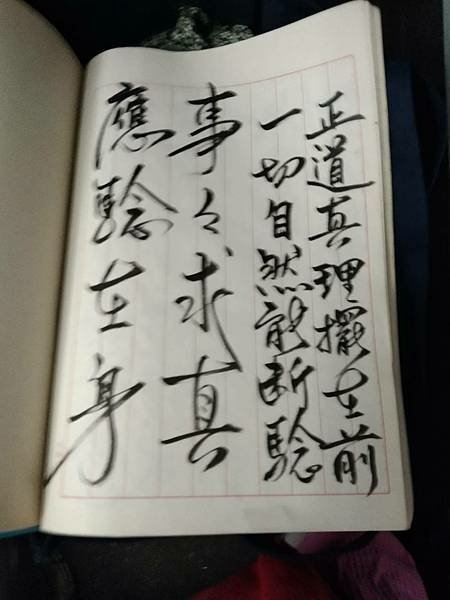 正道真理擺在前
一切自然能断驗
事々求真
應驗在身